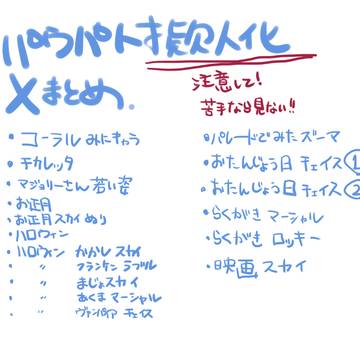 パウパト擬人化
Xまとめ。
注意して!
苦手な人見ない!!
・コーラル みにきゃら
・チカレッタ
・マジョリーさん 若い姿
・お正月
・お正月スカイ ぬり
・ハロウィン
・ハロウィン かかし スカイ
・ 〃 フランケン ラブル
・ 〃 まじょスカイ
・ 〃 あくま マーシャル
・ 〃 ヴァンパイア チェイス
・パレードでみたズーマ
・おたんじょう日 チェイス①
・おたんじょう日 チェイス②
・らくがき マーシャル
・らくがき ロッキー
・映画 スカイ